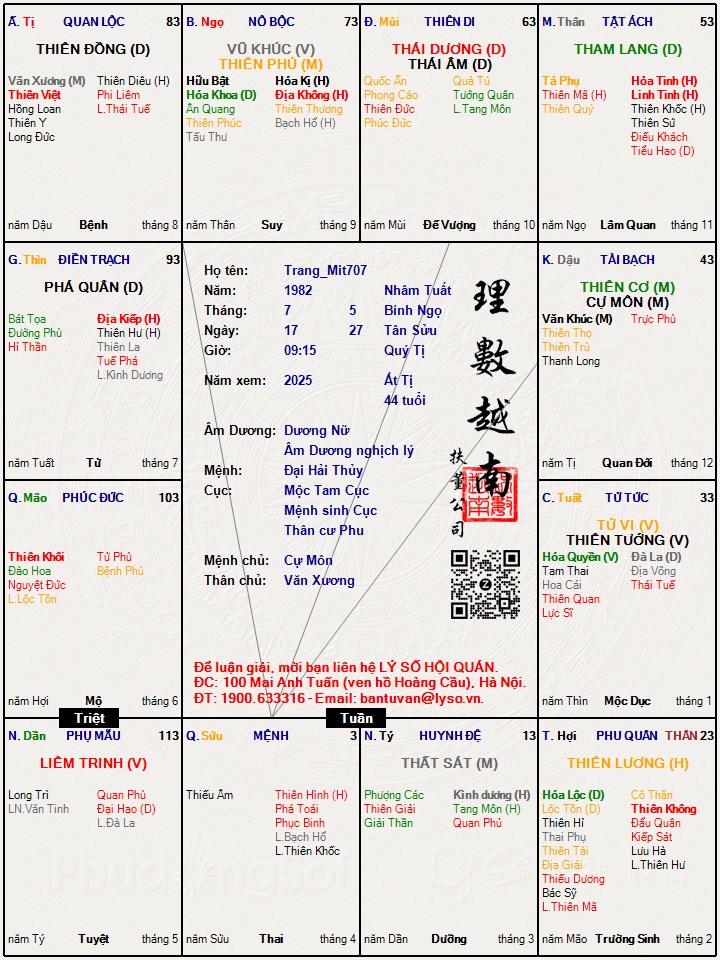 Ấ. Tị QUAN LỘC 83
THIÊN ĐỒNG (D)
Văn Xương (M) Thiên Diêu (H)
Thiên Việt Phi Liêm
Hồng Loan L.Thái Tuế
Thiên Y
Long Đức
năm Dậu Bệnh tháng 8
B. Ngọ NÔ BỘC 73
VŨ KHÚC (V)
THIÊN PHỦ (M)
Hữu Bật Hóa Kị (H)
Hóa Khoa (D) Địa Không (H)
Ân Quang Thiên Thương
Thiên Phúc Bạch Hổ (H)
Tấu Thư
năm Thân Suy tháng 9
Đ. Mùi THIÊN DI 63
THÁI DƯƠNG (D)
THÁI ÂM (D)
Quốc Ấn Quả Tú
Phong Cáo Tướng Quân
Thiên Đức L.Tang Môn
Phúc Đức
năm Mùi Đế Vượng tháng 10
M. Thân TẬT ÁCH 53
THAM LANG (D)
Tả Phụ Hỏa Tinh (H)
Thiên Mã (H) Linh Tinh (H)
Thiên Quý Thiên Khốc (H)
Thiên Sứ
Điếu Khách
Tiểu Hao (D)
năm Ngọ Lâm Quan tháng 11
G. Thìn ĐIỀN TRẠCH 93
PHÁ QUÂN (D)
Bát Tọa Địa Kiếp (H)
Đường Phù Thiên Hư (H)
Hỉ Thần Thiên La
Tuế Phá
L.Kình Dương
năm Tuất Tử tháng 7
Họ tên: Trang_Mit707
Năm: 1982 Nhâm Tuất
Tháng: 7 5 Bính Ngọ
Ngày: 17 27 Tân Sửu
Giờ: 09:15 Quý Tị
Năm xem: 2025 Ất Tị
44 tuổi
Âm Dương: Dương Nữ
Âm Dương nghịch lý
Mệnh: Đại Hải Thủy
Cục: Mộc Tam Cục
Mệnh sinh Cục
Thân cư Phu
Mệnh chủ: Cự Môn
Thân chủ: Văn Xương
理數越南
扶董公司
Để luận giải, mời bạn liên hệ LÝ SỐ HỘI QUÁN.
ĐC: 100 Mai Anh Tuấn (ven hồ Hoàng Cầu), Hà Nội.
ĐT: 1900.633316 - Email: bantuvan@lyso.vn.
K. Dậu TÀI BẠCH 43
THIÊN CƠ (M)
CỰ MÔN (M)
Văn Khúc (M) Trực Phù
Thiên Thọ
Thiên Trù
Thanh Long
năm Tị Quan Đới tháng 12
Q. Mão PHÚC ĐỨC 103
Thiên Khôi Tử Phù
Đào Hoa Bệnh Phù
Nguyệt Đức
L.Lộc Tồn
năm Hợi Mộ tháng 6
C. Tuất TỬ TỨC 33
TỬ VI (V)
THIÊN TƯỚNG (V)
Hóa Quyền (V) Đà La (D)
Tam Thai Địa Võng
Hoa Cái Thái Tuế
Thiên Quan
Lực Sĩ
năm Thìn Mộc Dục tháng 1
Triệt
Tuần
N. Dần PHỤ MẪU 113
LIÊM TRINH (V)
Long Trì Quan Phù
LN.Văn Tinh Đại Hao (D)
L.Đà La
năm Tý Tuyệt tháng 5
Q. Sửu MỆNH 3
Thiếu Âm Thiên Hình (H)
Phá Toái
Phục Binh
L.Bạch Hổ
L.Thiên Khốc
năm Sửu Thai tháng 4
N. Tý HUYNH ĐỆ 13
THẤT SÁT (M)
Phượng Các Kình dương (H)
Thiên Giải Tang Môn (H)
Giải Thần Quan Phủ
năm Dần Dưỡng tháng 3
T. Hợi PHU QUÂN THÂN 23
THIÊN LƯƠNG (H)
Hóa Lộc (D) Cô Thần
Lộc Tồn (D) Thiên Không
Thiên Hỉ Đẩu Quân
Thai Phụ Kiếp Sát
Thiên Tài Lưu Hà
Địa Giải L.Thiên Hư
Thiếu Dương
Bác Sỹ
L.Thiên Mã
năm Mão Trường Sinh tháng 2